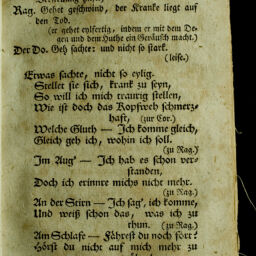 Rag. Gehet geschwind, der Kranke liegt auf
den Tod.
(er gehet eylfertig, indem er mit dem De-
gen und dem Huthe ein Geräusch macht.)
Der Do. Geh sachte: und nicht so stark.
(leise.)
Etwas sachte, nicht so eylig.
Stellet sie sich, krank zu seyn,
So will ich mich traurig stellen,
Wie ist doch das Kopfweh schmerz-
haft, (zur Cor.)
Welche Gluth — Ich komme gleich,
Gleich geh ich, wohin ich soll.
(zu Rag.)
Im Aug' — Ich hab es schon ver-
standen,
Doch ich erinnre michs nicht mehr.
(zu Rag.)
An der Stirn — Ich sag', ich komme,
Und weiß schon das, was ich zu
thun. (zu Rag.)
Am Schlafe — Fährest du noch fort?
Hörst du nicht auf mich mehr zu